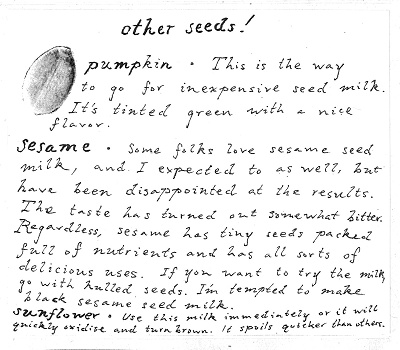 other seeds!
pumpkin • This is the way
to go for inexpensive seed milk.
It's tinted green with a nice
flavor.
sesame • Some folks love sesame seed
milk, and I expected to as well, but
have been disappointed at the results.
The taste has turned out somewhat bitter.
Regardless, sesame has tiny seeds packed
full of nutrients and has all sorts of
delicious uses. If you want to try the milk,
go with hulled seeds. I'm tempted to make
black sesame seed milk.
sunflower • Use this milk immediately or it will
quickly oxidise and turn brown. It spoils quicker than others.